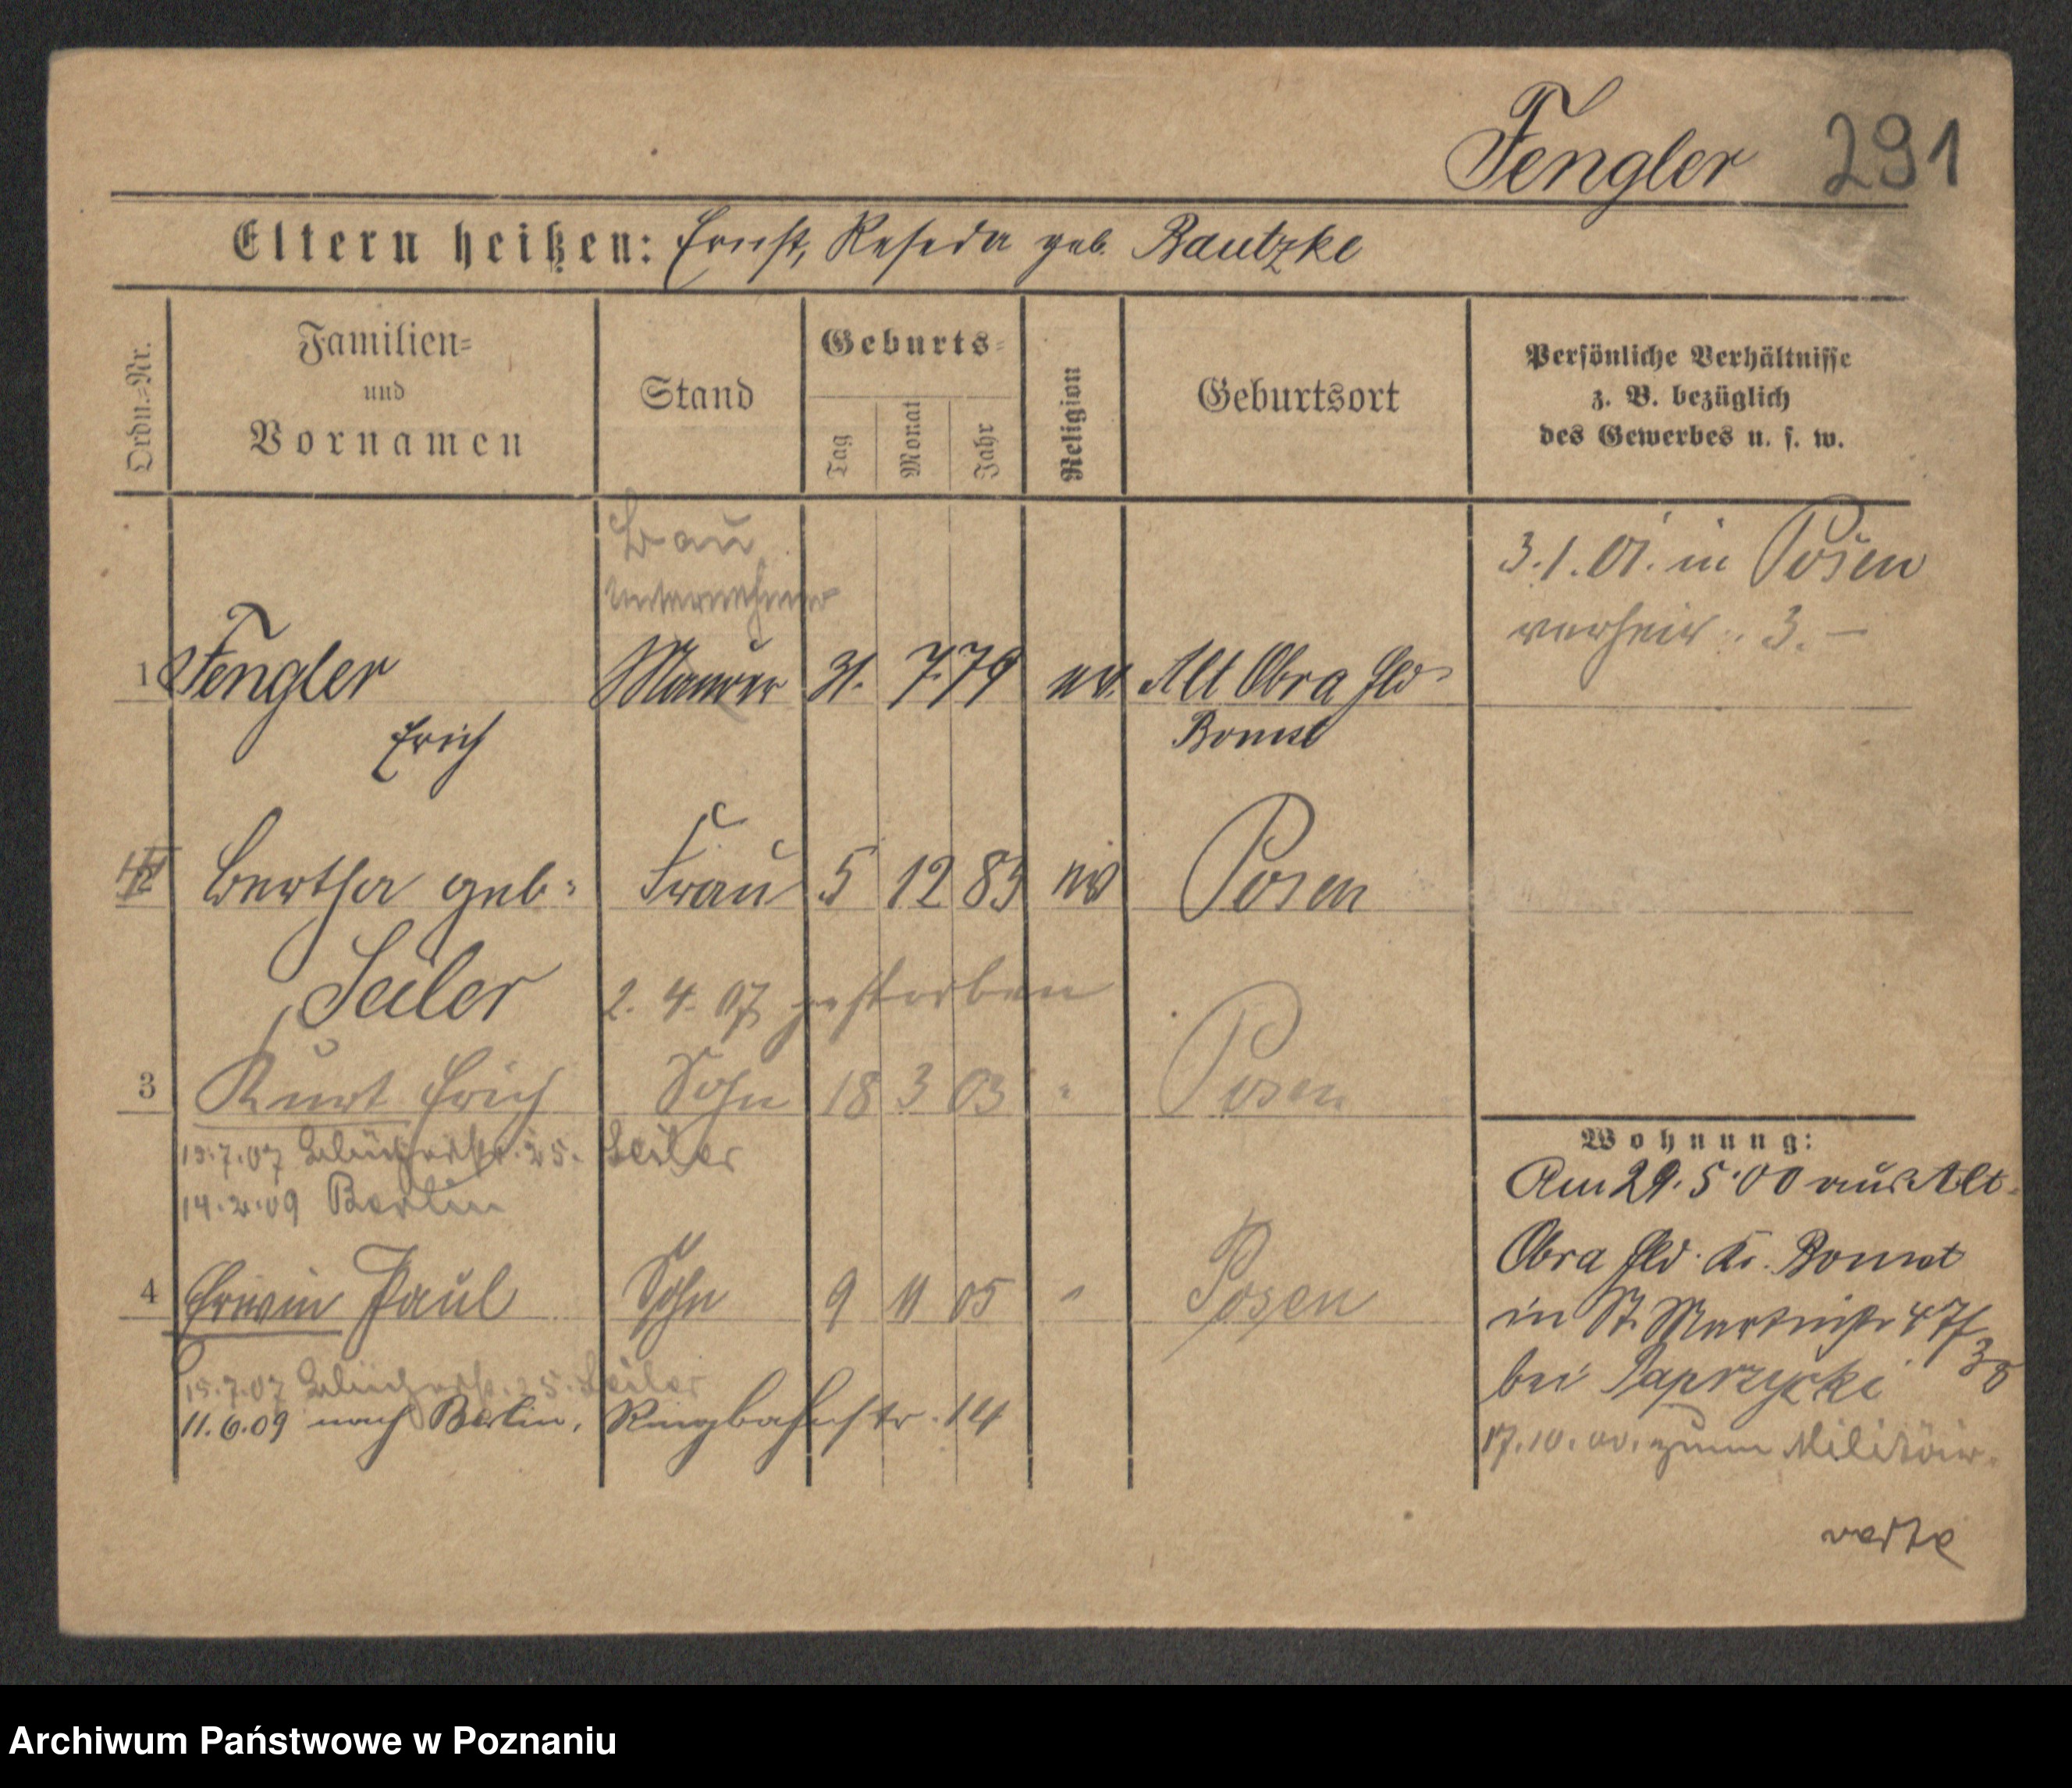 Fengler 291
Eltern heißen: Ernst, Reseda geb. Bautzke
Ordn.=Nr.
Familien=
und
Vornamen
Stand
Geburts=
Tag
Monat
Jahr
Religion
Geburtsort
Persönliche Verhältnisse
z. B. bezüglich
des Gewerbes u. s. w.
Bau
Unternehmer
3.1.01. in Posen
verheir. 3. –
1 Fengler Maurer 31. 7. 79 ev. Alt Obra Hld
Erich Bomst
2 Bertha geb. Frau 5 12 83 ev Posen
Seiler 2. 4. 07 gestorben
3 Kurt Erich Sohn 18 3 03 " Posen
15.7.07 Blücherstr. 25. Seiler
14.2.09 Berlin
4 Erwin Paul Sohn 9 11 05 " Posen
15.7.07 Blücherstr. 25. Seiler
11.6.09 nach Berlin, Ringbahnstr. 14
Wohnung:
Am 29.5.00 aus Alt
Obra Hld. Kr. Bomst
in St. Martinstr 47/38
bei Paprzycki
17.10.00. zum Militär.
verte
Archiwum Państwowe w Poznaniu